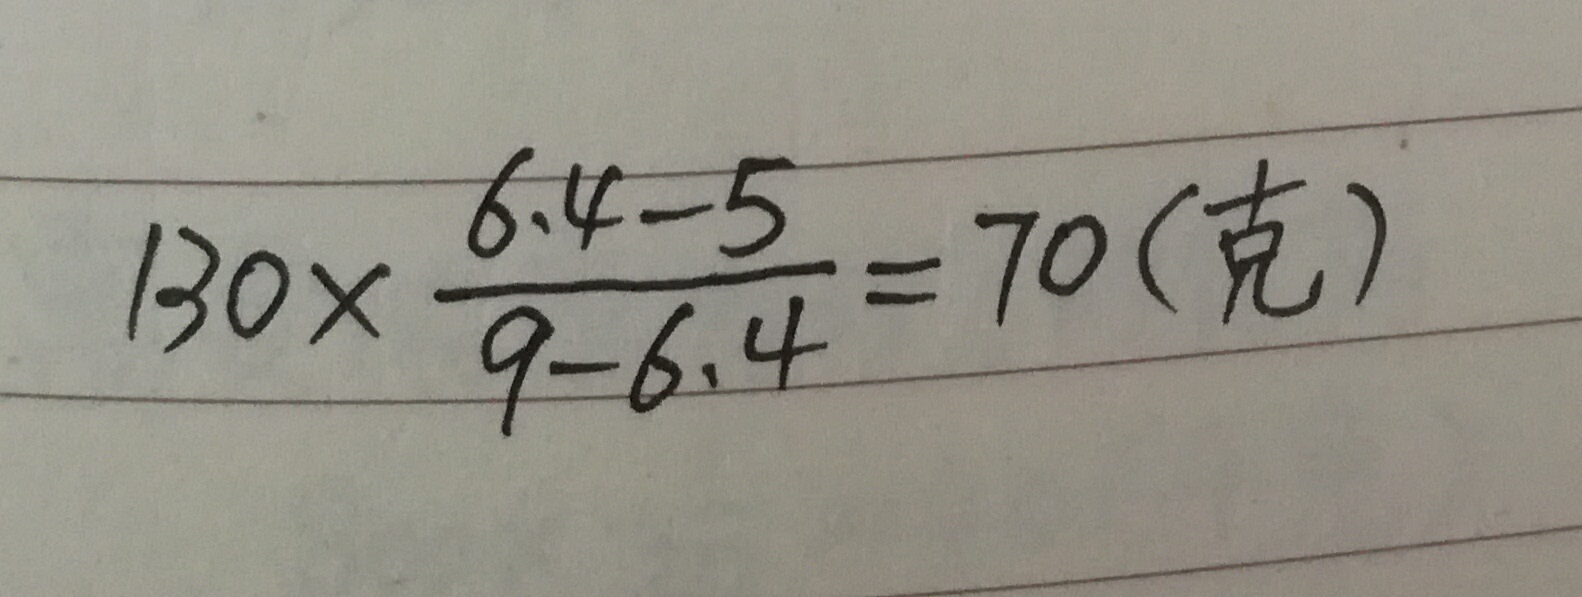 130×\frac{6.4-5}{9-6.4}=70(克)